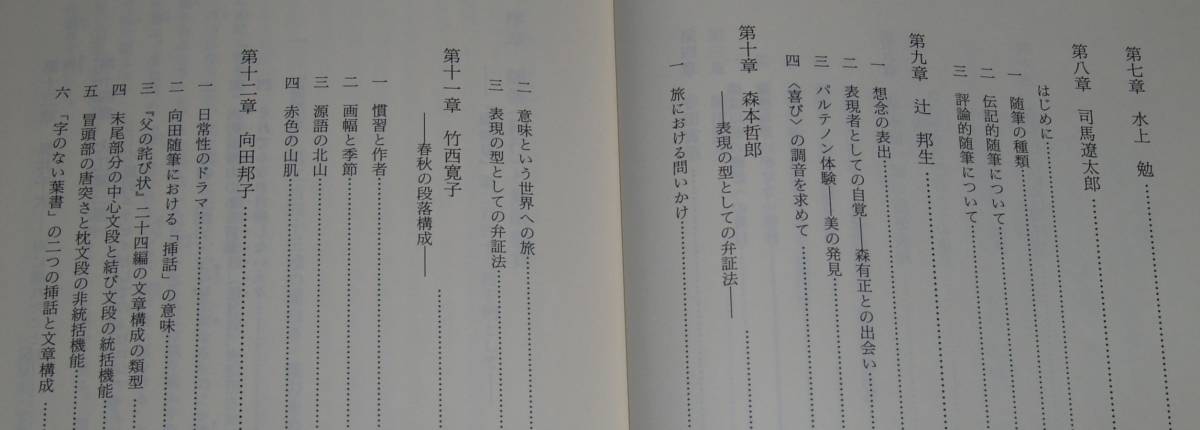 第七章 水上 勉
第八章 司馬遼太郎
はじめに
一 随筆の種類
二 伝記的随筆について
三 評論的随筆について
第九章 辻 邦生
一 想念の表出
二 表現者としての自覚――森有正との出会い
三 パルテノン体験――美の発見
四 〈喜び〉の調音を求めて
第十章 森本哲郎
――表現の型としての弁証法――
一 旅における問いかけ
二 意味という世界への旅
三 表現の型としての弁証法
第十一章 竹西寛子
――春秋の段落構成――
一 慣習と作者
二 画幅と季節
三 源語の北山
四 赤色の山肌
第十二章 向田邦子
一 日常性のドラマ
二 向田随筆における「挿話」の意味
三 『父の詫び状』二十四編の文章構成の類型
四 末尾部分の中心文段と結び文段の統括機能
五 冒頭部の唐突さと枕文段の非統括機能
六 「字のない葉書」の二つの挿話と文章構成